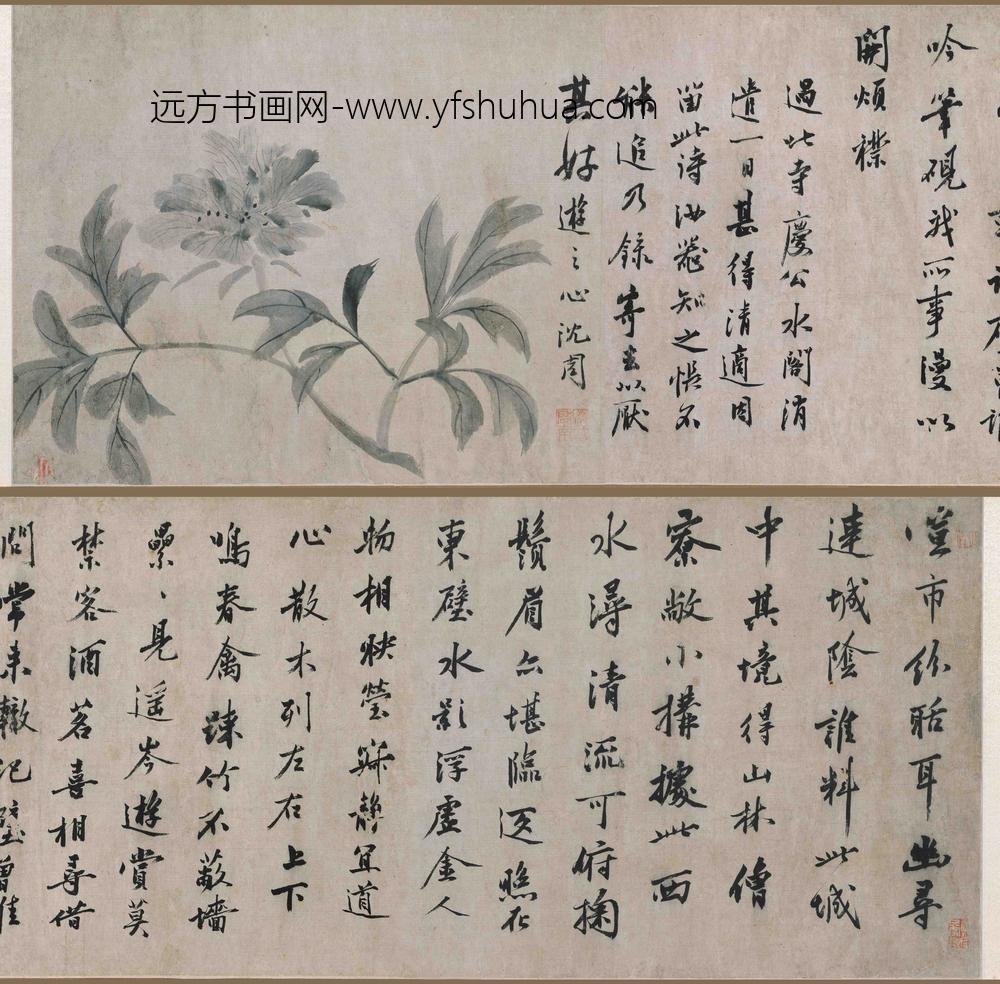 远方书画网-www.yfshuhua.com
喧市紛聒耳幽尋
達城陰誰料此城
中其境得山林僧
寮敞小構據此西
水潯清流可俯掬
鬚眉亦堪臨返照在
東壁水影浮虛金人
物相映瑩寂靜宜道
心散木列左右上下
鳴春禽疎竹不蔽墻
纍纍見遥岑遊賞莫
禁客酒茗喜相尋借
問常來轍記壁曾
吟筆硯我所事漫以
開煩襟
過此寺慶公水閣消
遣一日甚得清適因
留此詩汝器知之恨不
能追乃錄寄去以厭
其好遊之心沈周